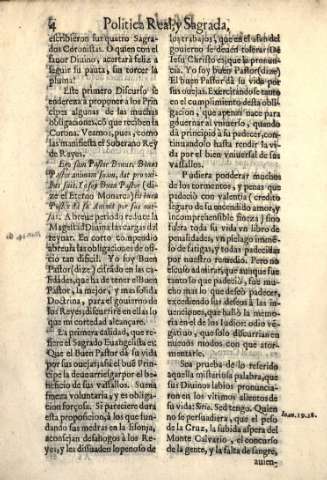 4 Politica Real, y Sagrada,
escribieron sus quatro Sagra-
dos Coronistas. O quien con el
fauor Diuino, acertara feliz a
seguir su pauta, sin torcer la
pluma!
Este primero Discurso se
endereza a proponer a los Prin-
cipes algunas de las muchas
obligaciones, cõ que reciben la
Corona. Veamos, pues, como
las manifiesta el Soberano Rey
de Reyes.
Ego sum Pastor Bonus. Bonus
Pastor animam suam, dat pro oui-
bus suis. Yo soy Buen Pastor (di-
ze el Eterno Monarca)
A breue periodo reduze la
Magestad Diuina las cargas del
reynar. En corto compendio
abreuia las obligaciones de ofi-
cio tan dificil. Yo soy Buen
Pastor (dize) cifrado en las ca-
lidades, que ha de tener el Buen
Pastor, la mejor, y mas solida
Doctrina, para el gouierno de
los Reyes; discurriré en ellas lo
que mi cortedad alcançare.
La primera calidad, que re-
fiere el Sagrado Euangelista es:
Que el Buen Pastor dà su vida
por sus ouejas; assi el buẽ Prin-
cipe la deue arriesgar por el be-
neficio de sus vassallos. Suma
fineza voluntaria, y es obliga-
cion forçosa. Si pareciere dura
esta proposicion, à los que fun-
dando sus medras en la lisonja,
aconsejan desahogos à los Re-
yes, y les disuaden lo penoso de
los trabajos, que en el afan del
gouierno se deuen tolerar: De
Iesu Christo es, que la pronun-
cia. Yo soy buen Pastor (dize)
El buen Pastor dà su vida por
sus ouejas. Exercitandose tanto
en el cumplimiento desta obli-
gacion, que apenas nace para
gouernar al vniuerso, quando
dà principio à su padecer, conti-
nuandolo hasta rendir la vi-
da por el bien vniuersal de sus
vassallos.
Pudiera ponderar muchos
de los tormentos, y penas que
padeciò con valentia (credito
seguro de su encendido amor)
incomprehensible fuerça, sino
fuera toda su vida vn libro de
penalidades, vn pielago inmen-
so de fatigas, y todas padecidas
por nuestro remedio. Pero no
escuso admirar, que aunque fue
tanto lo que padeciò, fue mu-
cho mas lo que deseò padecer,
excediendo sus deseos à las in-
uenciones, que hallò la memo-
ria en el de los Iudios: odio vẽ-
gatiuo, que solo discurrian en
nueuos modos con que ator-
mentarle.
Sea prueba de lo referido
aquella misteriosa palabra, que
sus Diuinos labios pronuncia-
ron en los vltimos alientos de
su vida: Sitio. Sed tengo. Quien
no se persuadiera, que el peso
de la Cruz, la subida aspera del
Monte Caluario, el concurso
de la gente, y la falta de sangre,
auien-
Ioan. 19. 28.